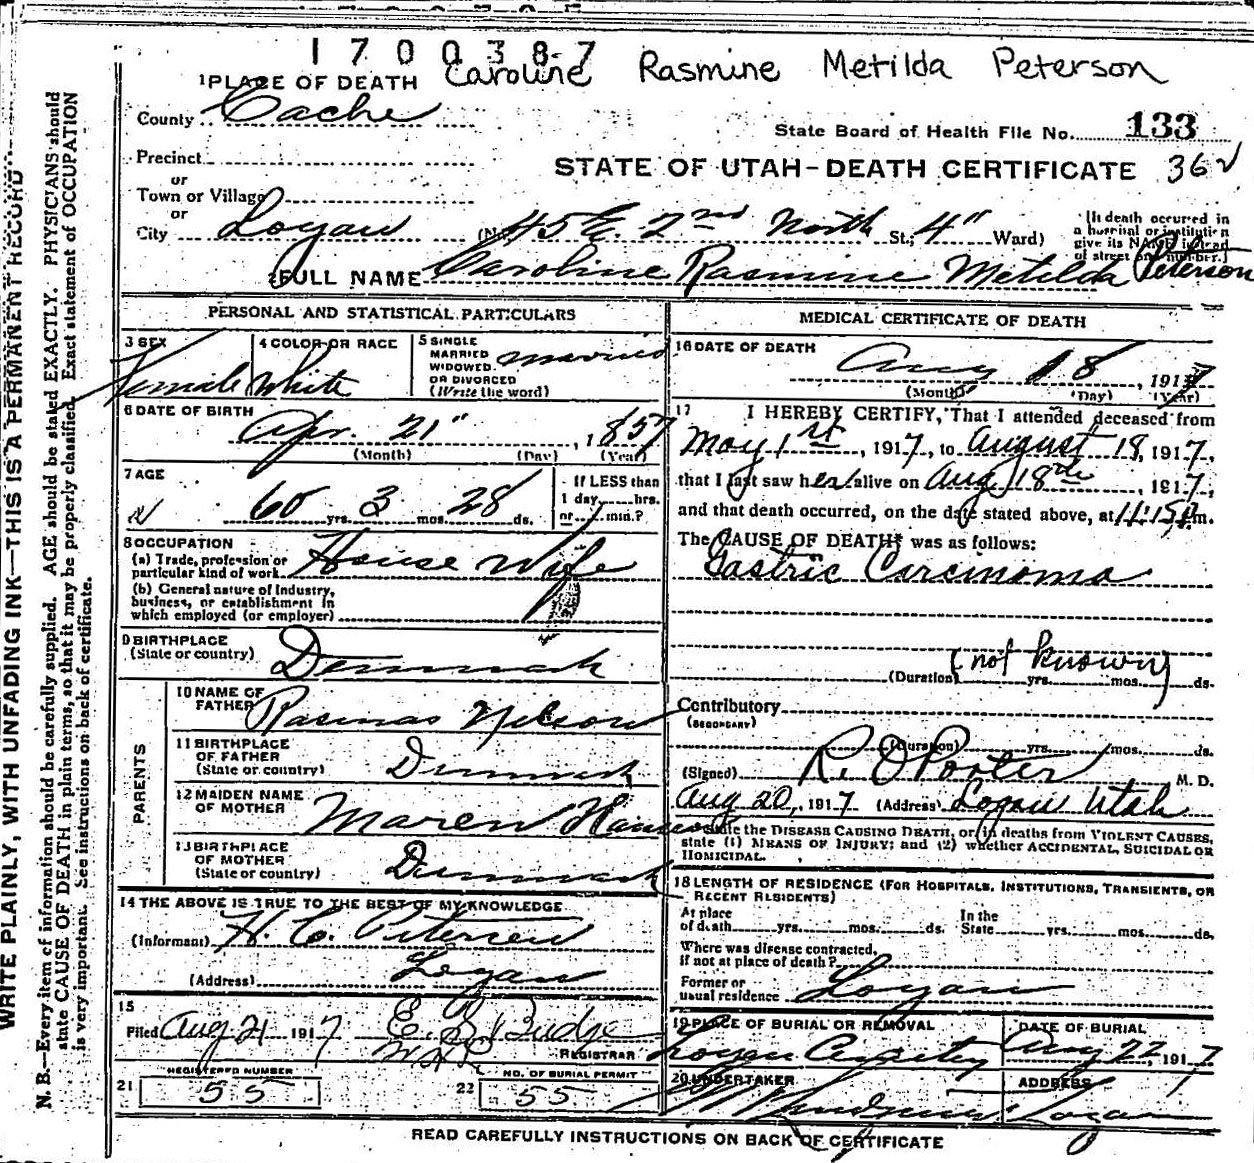 1700387
Caroline Rasmine Metilda Peterson
1 PLACE OF DEATH
County Cache
State Board of Health File No. 133
Precinct
STATE OF UTAH—DEATH CERTIFICATE 362
or
Town or Village
or
City Logan (No. 45 E. 2nd North St.; 4" Ward)
(If death occurred in a hospital or institution give its NAME instead of street and number.)
2 FULL NAME Caroline Rasmine Metilda Peterson
PERSONAL AND STATISTICAL PARTICULARS
3 SEX Female
4 COLOR OR RACE White
5 SINGLE MARRIED WIDOWED OR DIVORCED (Write the word) married
6 DATE OF BIRTH
Apr. 21", 1857
(Month) (Day) (Year)
7 AGE
60 yrs. 3 mos. 28 ds.
If LESS than 1 day, hrs. or min.?
8 OCCUPATION
(a) Trade, profession or particular kind of work House Wife
(b) General nature of Industry, business, or establishment in which employed (or employer)
9 BIRTHPLACE (State or country) Denmark
PARENTS
10 NAME OF FATHER Rasmas Nilson
11 BIRTHPLACE OF FATHER (State or country) Denmark
12 MAIDEN NAME OF MOTHER Maren Hanson
13 BIRTHPLACE OF MOTHER (State or country) Denmark
14 THE ABOVE IS TRUE TO THE BEST OF MY KNOWLEDGE
(Informant) H. C. Petersen
(Address) Logan
15
Filed Aug 21 1917 Budge
REGISTRAR
REGISTERED NUMBER
21 55
NO. OF BURIAL PERMIT
22 55
MEDICAL CERTIFICATE OF DEATH
16 DATE OF DEATH
Aug 18, 1917
(Month) (Day) (Year)
17 I HEREBY CERTIFY, That I attended deceased from
May 1st, 1917, to August 18, 1917,
that I last saw her alive on Aug 18th, 1917,
and that death occurred, on the date stated above, at 11:15 P.m.
The CAUSE OF DEATH* was as follows:
Gastric Carcinoma
(Duration) (not known) yrs. mos. ds.
Contributory
(SECONDARY)
(Duration) yrs. mos. ds.
(Signed) R. O Porter M. D.
Aug 20, 1917 (Address) Logan Utah
state the DISEASE CAUSING DEATH, or, in deaths from VIOLENT CAUSES,
state (1) MEANS OF INJURY; and (2) whether ACCIDENTAL, SUICIDAL OR
HOMICIDAL.
18 LENGTH OF RESIDENCE (FOR HOSPITALS, INSTITUTIONS, TRANSIENTS, OR RECENT RESIDENTS)
At place of death yrs. mos. ds. In the State yrs. mos. ds.
Where was disease contracted, if not at place of death?
Former or usual residence Logan
19 PLACE OF BURIAL OR REMOVAL
Logan
DATE OF BURIAL
Aug 22, 1917
20 UNDERTAKER
ADDRESS
Logan
READ CAREFULLY INSTRUCTIONS ON BACK OF CERTIFICATE
WRITE PLAINLY, WITH UNFADING INK—THIS IS A PERMANENT RECORD
N. B.—Every item of information should be carefully supplied. AGE should be stated EXACTLY. PHYSICIANS should
state CAUSE OF DEATH in plain terms, so that it may be properly classified. Exact statement of OCCUPATION
is very important. See instructions on back of certificate.